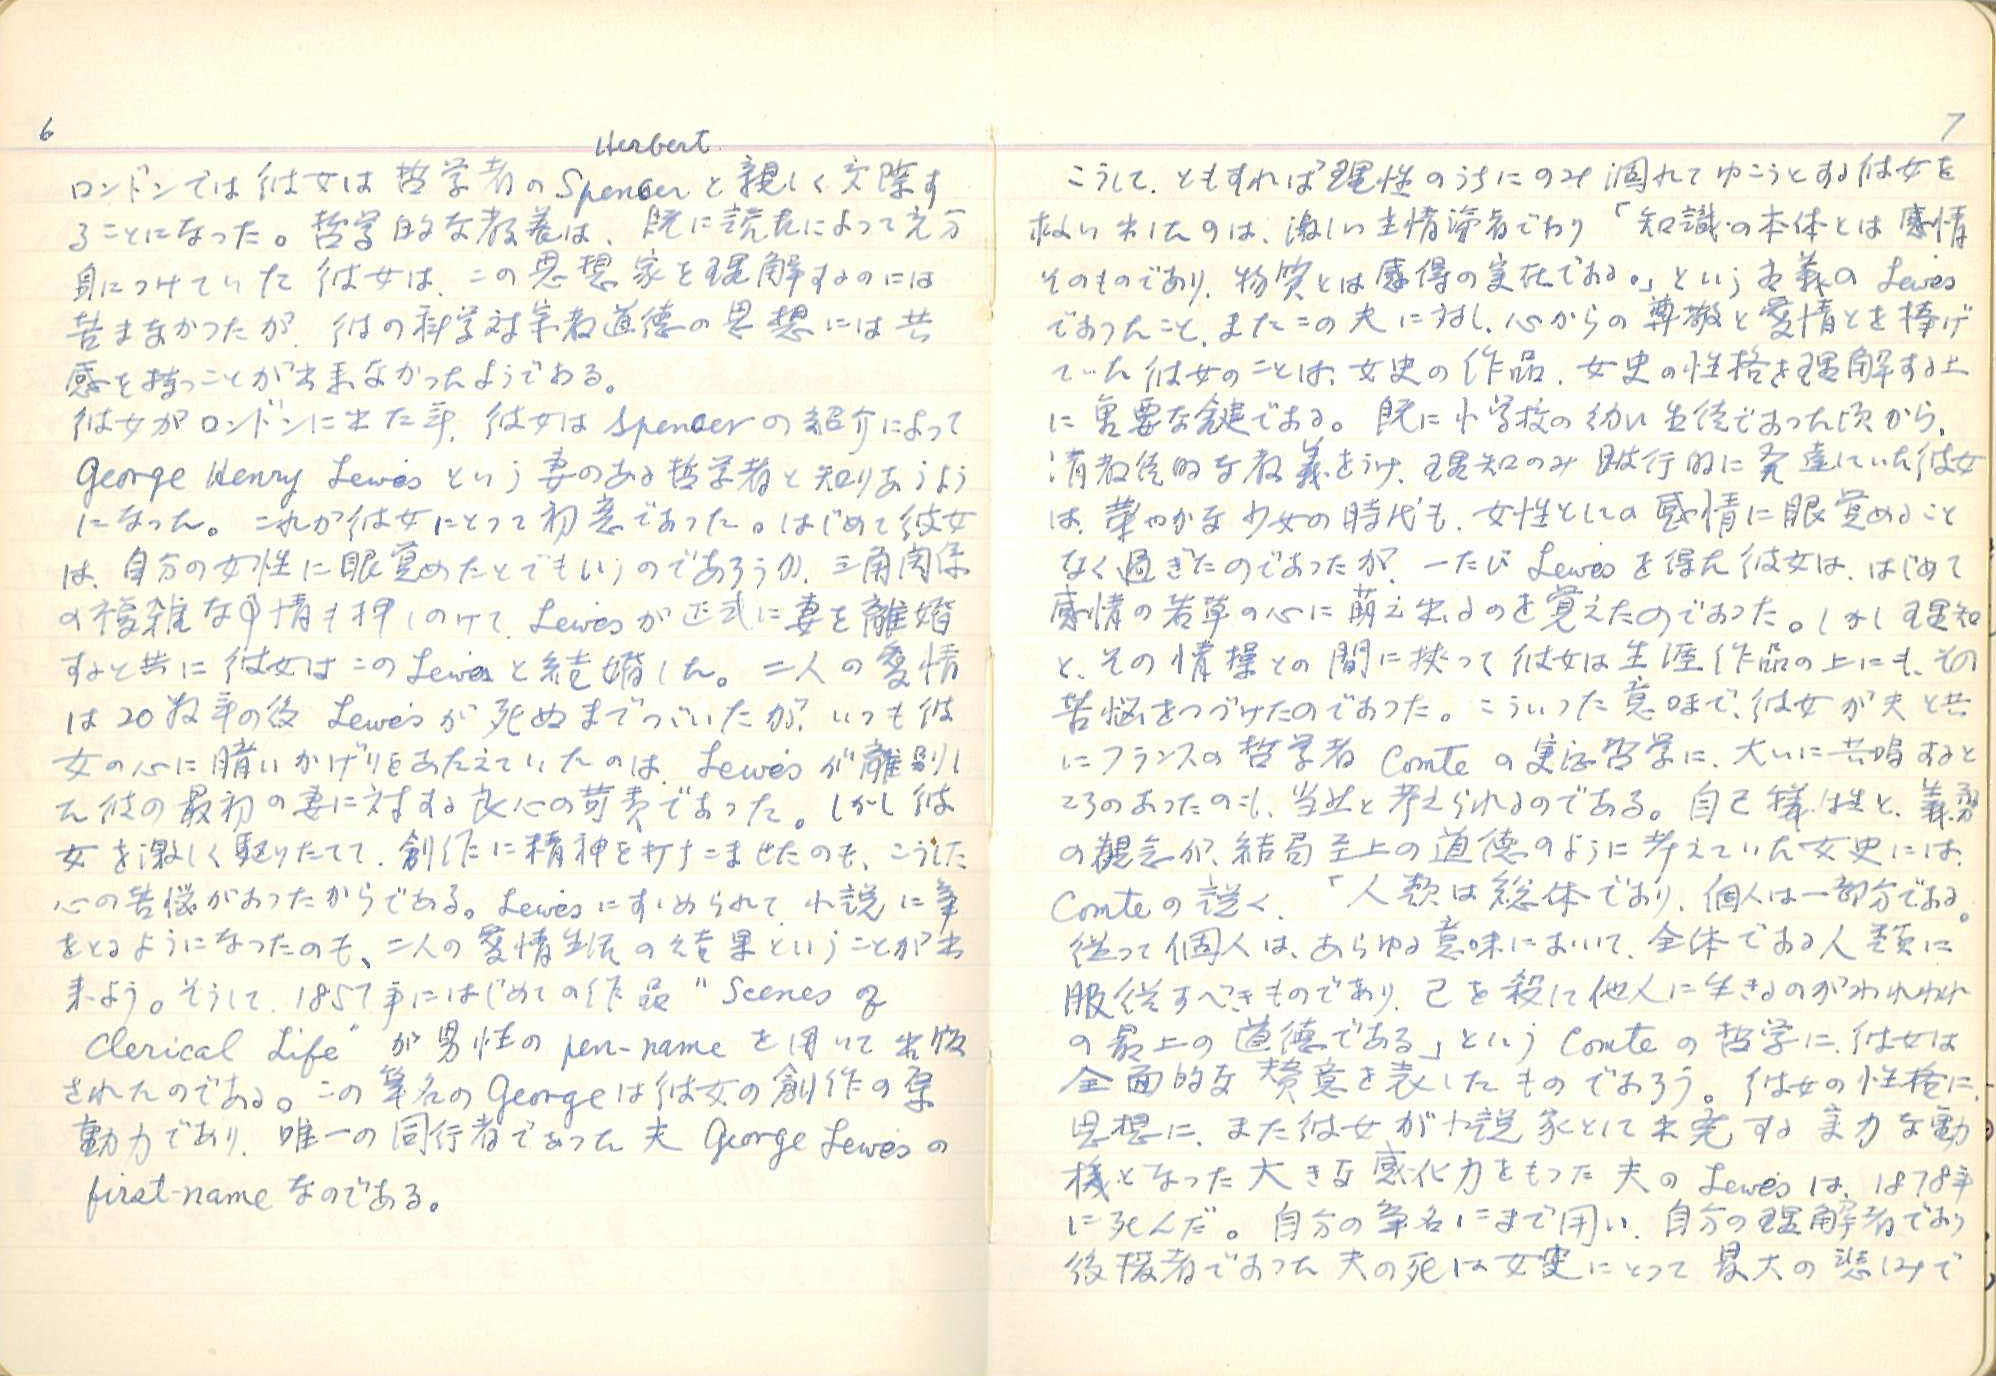 6
Herbert
ロンドンでは彼女は哲学者のSpencerと親しく交際す
ることになった。哲学的な教養は、既に読書によって充分
身につけていた彼女は、この思想家を理解するのには
苦まなかったが、彼の科学対宗教道徳の思想には共
感を持つことが出来なかったようである。
彼女がロンドンに出た年、彼女はSpencerの紹介によって
George Henry Lewesという妻のある哲学者と知りあうよう
になった。これが彼女にとって初恋であった。はじめて彼女
は、自分の女性に眼覚めたとでもいうのであろうか、三角関係
の複雑な事情も押しのけて、Lewesが正式に妻を離婚
すると共に彼女はこのLewesと結婚した。二人の愛情
は20数年の後Lewesが死ぬまでつづいたが、いつも彼
女の心に暗いかげりをあたえていたのは、Lewesが離別し
た彼の最初の妻に対する良心の苛責であった。しかし彼
女を激しく駆りたてて、創作に精神を打ちこませたのも、こうした
心の苦悩があったからである。Lewesにすすめられて小説に筆
をとるようになったのも、二人の愛情生活の結果ということが出
来よう。そうして、1857年にはじめての作品"Scenes of
Clerical Life"が男性のpen-nameを用いて出版
されたのである。この筆名のGeorgeは彼女の創作の原
動力であり、唯一の同行者であった夫George Lewesの
first-nameなのである。
7
こうして、ともすれば理性のうちにのみ涸れてゆこうとする彼女を
救い出したのは、激しい主情論者であり「知識の本体とは感情
そのものであり、物質とは感得の実在である。」という主義のLewes
であったこと、またこの夫に対し、心からの尊敬と愛情とを捧げ
ていた彼女のことは、女史の作品、女史の性格を理解する上
に重要な鍵である。既に小学校の幼い生徒であった頃から、
清教徒的な教義をうけ、理知のみ跛行的に発達していた彼女
は、華やかな少女の時代も、女性としての感情に眼覚めること
なく過ぎたのであったが、一たびLewesを得た彼女は、はじめて
感情の若草の心に萌え出るのを覚えたのであった。しかし理知
と、その情操との間に挟って彼女は生涯作品の上にも、その
苦悩をつづけたのであった。こういった意味で、彼女が夫と共
にフランスの哲学者Comteの実証哲学に、大いに共鳴すると
ころのあったのも、当然と考えられるのである。自己犠牲と、義務
の観念が、結局至上の道徳のように考えていた女史には、
Comteの説く、「人類は総体であり、個人は一部分である。
従って個人は、あらゆる意味において、全体である人類に
服従すべきものであり、己を殺して他人に生きるのがわれわれ
の最上の道徳である」というComteの哲学に、彼女は
全面的な賛意を表したものであろう。彼女の性格に、
思想に、また彼女が小説家として出発する主力な動
機となった大きな感化力をもつた夫のLewesは、1878年
に死んだ。自分の筆名にまで用い、自分の理解者であり
後援者であった夫の死は女史にとって最大の悲しみで